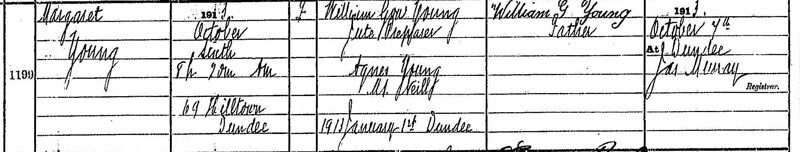 1199
Margaret
Young
1913
October
7h 20m AM
69 Hilltown
Dundee
F
William Geo. Young
Jute Preparer
Agnes Young
M.S. Reilly
1913 January 1st Dundee
William G Young
Father
1913.
October 7th
At Dundee
Jas Murray
Registrar.